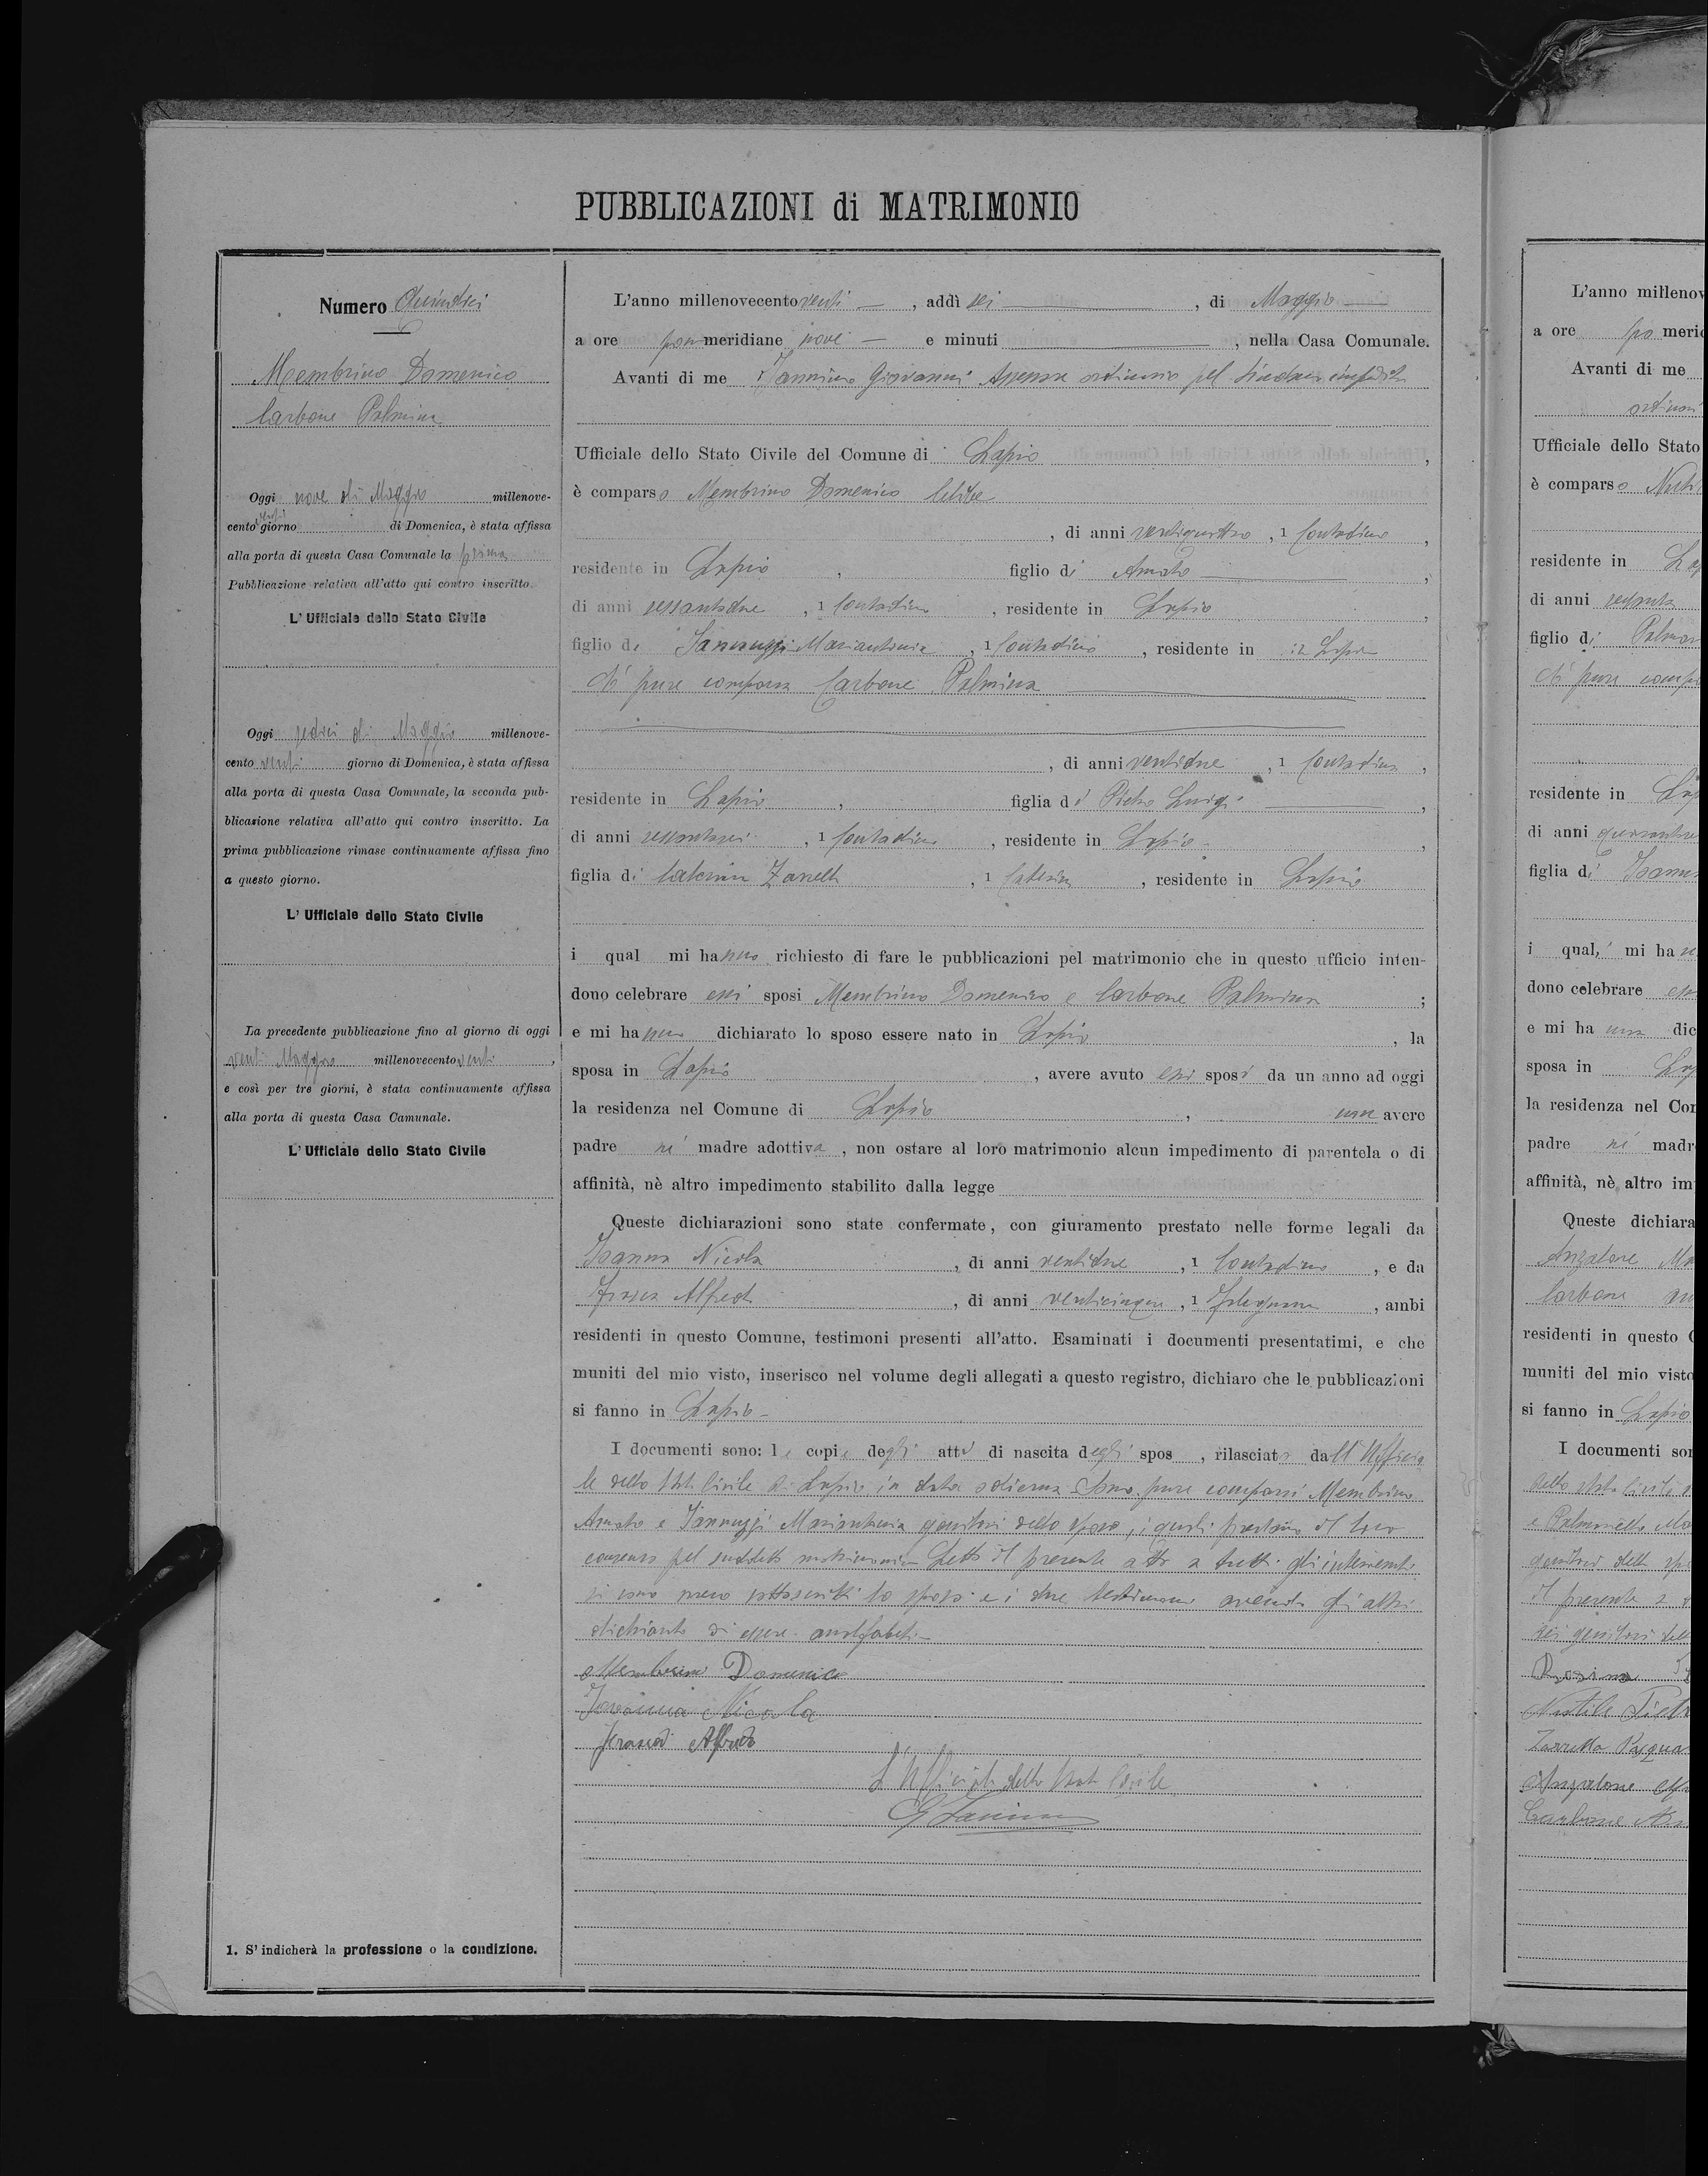 PUBBLICAZIONI di MATRIMONIO
Numero Quindici
Membrino Domenico
Carbone Palmina
Oggi nove di Maggio millenove-
cento venti giorno di Domenica, è stata affissa
alla porta di questa Casa Comunale la prima
Pubblicazione relativa all'atto qui contro inscritto.
L'Ufficiale dello Stato Civile
Oggi sedici di Maggio millenove-
cento venti giorno di Domenica, è stata affissa
alla porta di questa Casa Comunale, la seconda pub-
blicazione relativa all'atto qui contro inscritto. La
prima pubblicazione rimase continuamente affissa fino
a questo giorno.
L'Ufficiale dello Stato Civile
La precedente pubblicazione fino al giorno di oggi
venti Maggio millenovecento venti,
e così per tre giorni, è stata continuamente affissa
alla porta di questa Casa Camunale.
L'Ufficiale dello Stato Civile
1. S'indicherà la professione o la condizione.
L'anno millenovecento venti, addì sei, di Maggio
a ore pomeridiane nove e minuti, nella Casa Comunale.
Avanti di me Giovanni Assessore ordinario pel Sindaco impedito
Ufficiale dello Stato Civile del Comune di Lapio,
è comparso Membrino Domenico celibe
, di anni ventiquattro, 1 Contadino,
residente in Lapio, figlio di Amato,
di anni sessantadue, 1 Contadino, residente in Lapio
figlio di Iannuzzi Mariantonia, 1 Contadina, residente in in Lapio
È pure comparsa Carbone Palmina
, di anni ventidue, 1 Contadina,
residente in Lapio, figlia di Pietro Luigi,
di anni sessantasei, 1 Contadino, residente in Lapio,
figlia di Caterina Zarrella, 1, residente in Lapio
i qual mi hanno richiesto di fare le pubblicazioni pel matrimonio che in questo ufficio inten-
dono celebrare essi sposi Membrino Domenico e Carbone Palmina;
e mi hanno dichiarato lo sposo essere nato in Lapio, la
sposa in Lapio, avere avuto essi sposi da un anno ad oggi
la residenza nel Comune di Lapio, non avere
padre nè madre adottiva, non ostare al loro matrimonio alcun impedimento di parentela o di
affinità, nè altro impedimento stabilito dalla legge
Queste dichiarazioni sono state confermate, con giuramento prestato nelle forme legali da
Nicola, di anni ventidue, 1 Contadino, e da
Alfredo, di anni venticinque, 1 Falegname, ambi
residenti in questo Comune, testimoni presenti all'atto. Esaminati i documenti presentatimi, e che
muniti del mio visto, inserisco nel volume degli allegati a questo registro, dichiaro che le pubblicazioni
si fanno in Lapio
I documenti sono: le copie degli atti di nascita degli spos, rilasciati dall'Ufficia
le dello Stato Civile di Lapio in data odierna. Sono pure comparsi Membrino
Amato e Iannuzzi Mariantonia genitori dello sposo, i quali prestano il loro
consenso pel suddetto matrimonio. Letto il presente atto a tutti gli intervenuti
si sono meco sottoscritti lo sposo e i due testimoni avendo gli altri
dichiarato di essere analfabeti
Membrino Domenico
Nicola
Alfredo
L'Ufficiale dello Stato Civile
L'anno millenov
a ore po meri
Avanti di me
Ufficiale dello Stato
è comparso
residente in
di anni
figlio di
È pure
residente in
di anni
figlia di
i quali mi ha
dono celebrare
e mi ha dic
sposa in
la residenza nel Co
padre nè madr
affinità, nè altro im
Queste dichiara
Carbone
residenti in questo
muniti del mio visto
si fanno in Lapio
I documenti so
dello stato civile
il presente